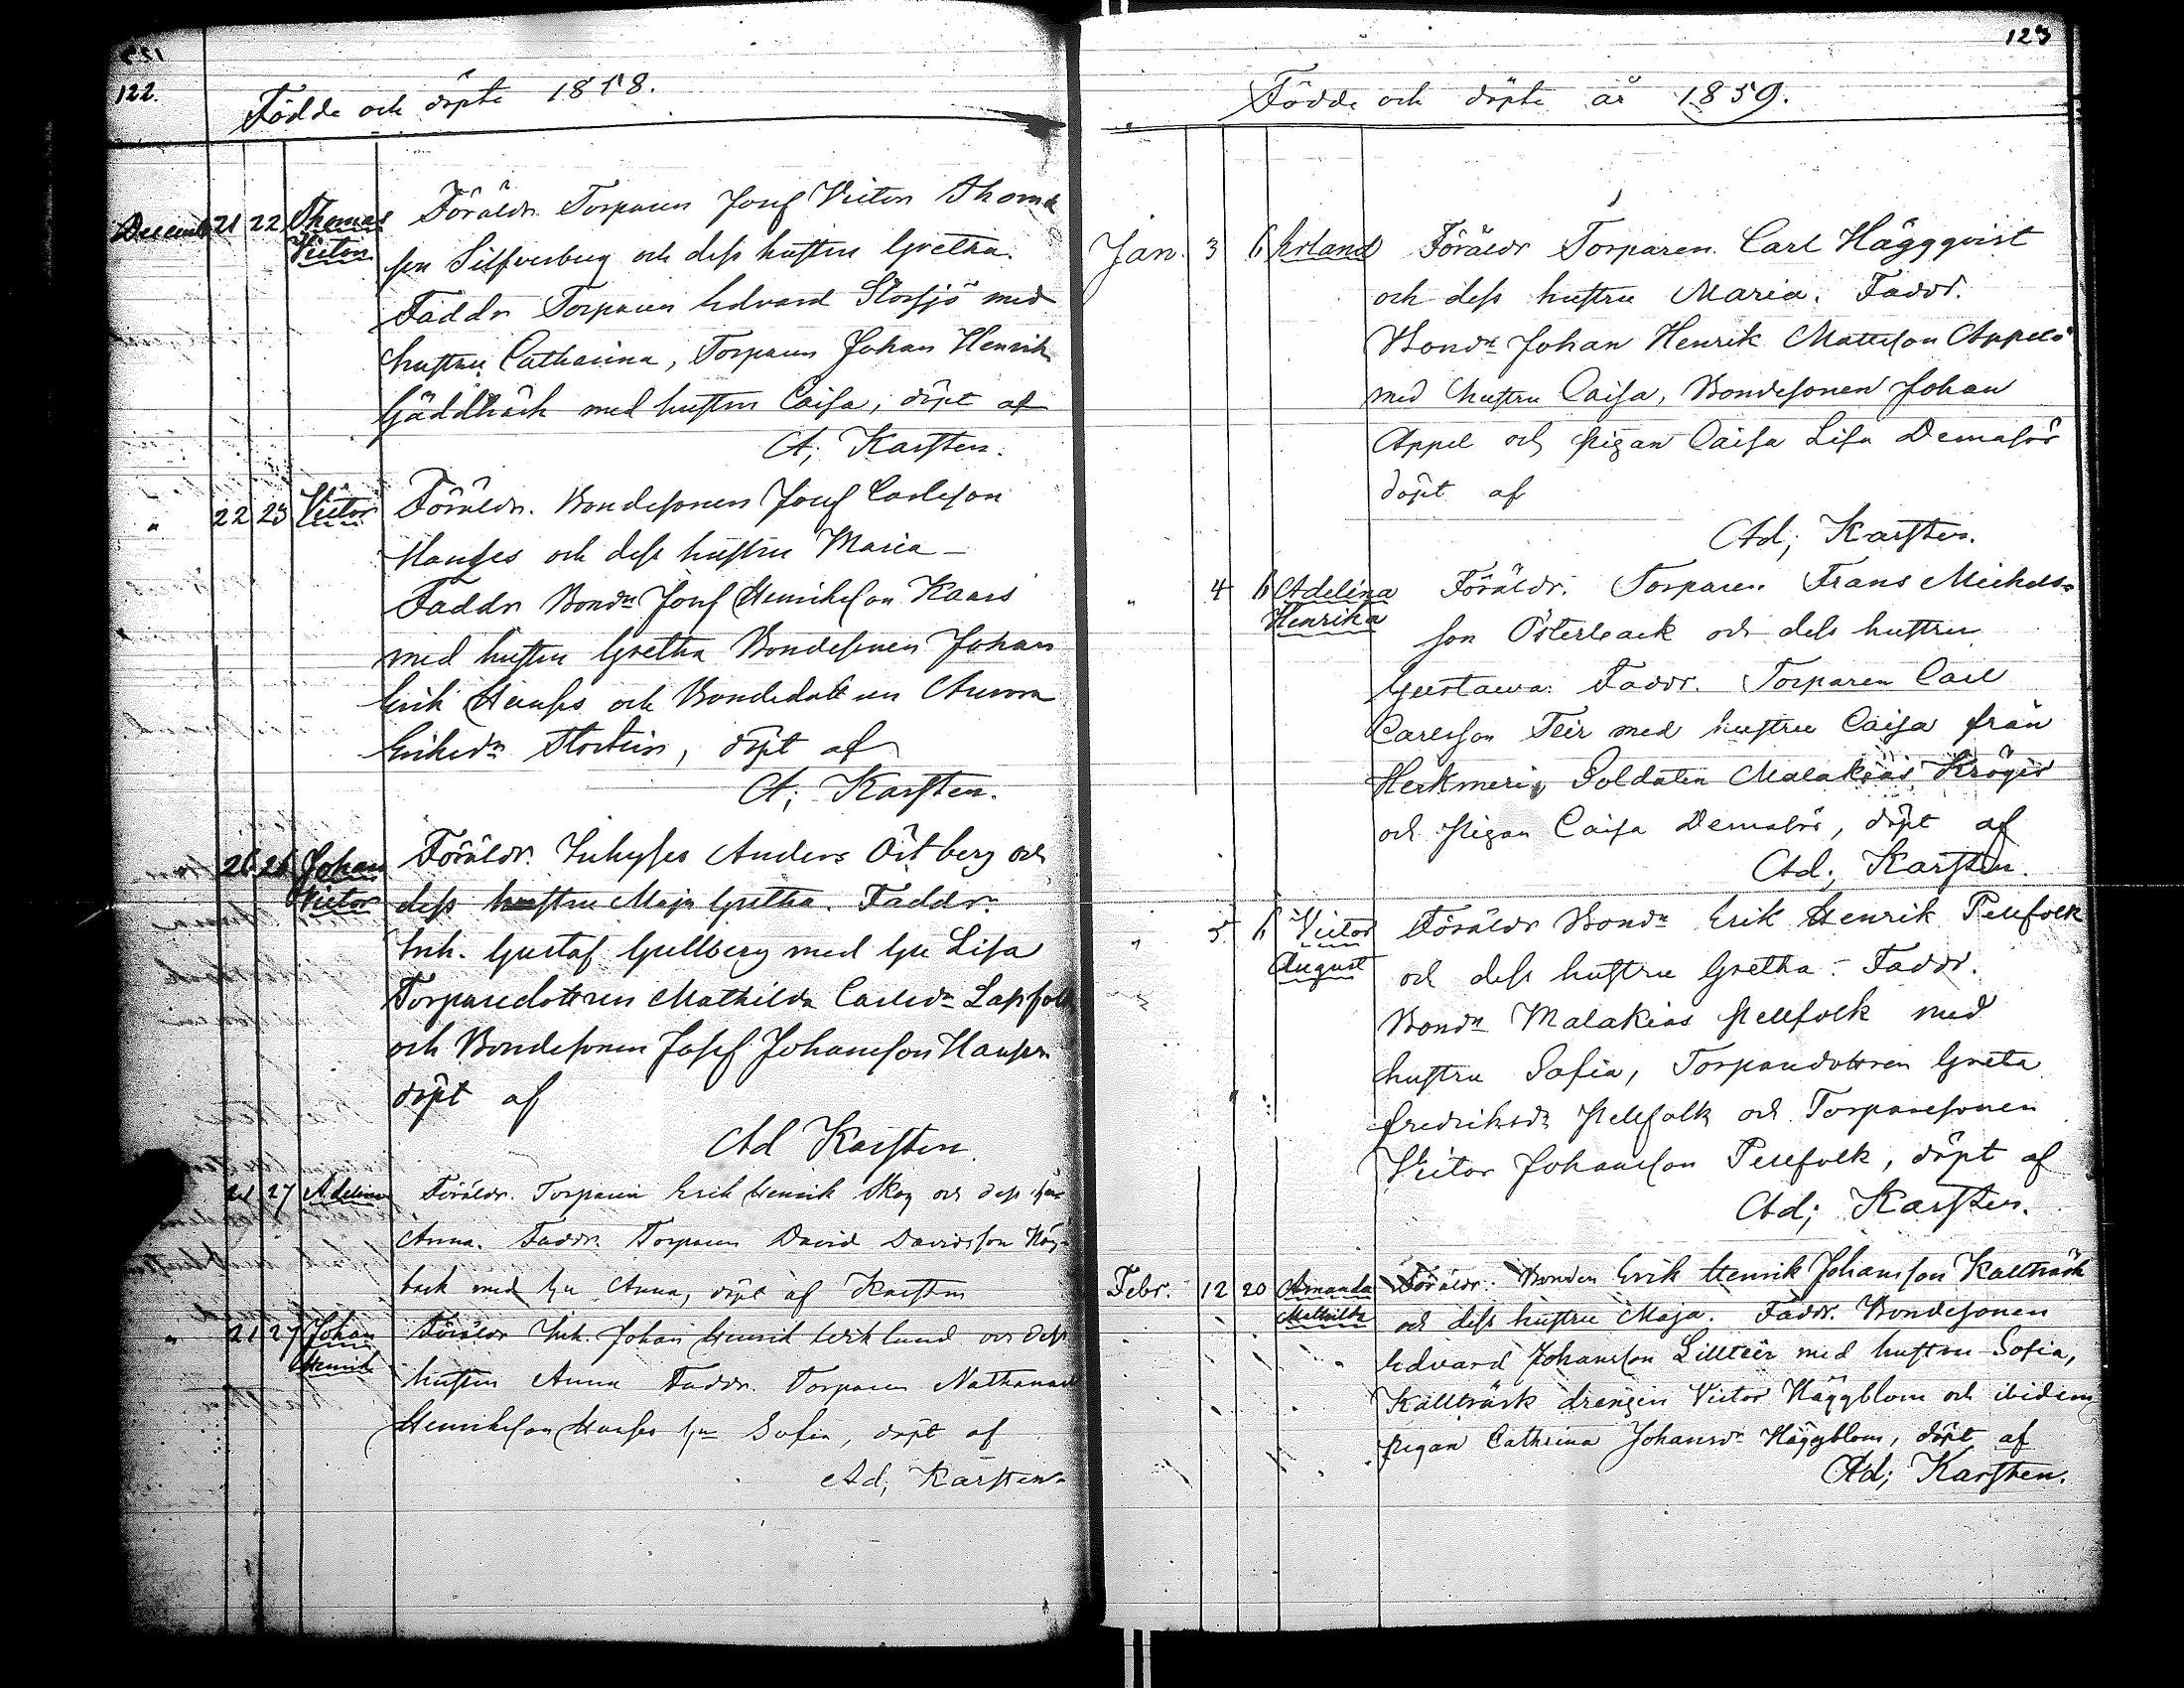 122.
Födde och döpte 1858.
Decemb 21 22 Thomas Victor Föräldr. Torparen Josef Victor Thoms
son Silfverberg och dess hustru Gretha.
Faddr Torparen Edvard Storsjö med
hustru Catharina, Torparen Johan Henrik
Gäddbäck med hustru Caisa, döpt af
A; Karsten.
" 22 23 Victor Föräldr. Bondesonen Josef Carlsson
och dess hustru Maria
Faddr Bondn Josef Henriksson Kaars
med hustru Gretha Bondesonen Johan
Erik och Bondedottren Aurora
Eriksdr döpt af
A; Karsten.
26 26 Johan Victor Föräldr. Inhyses Anders Östberg och
dess hustru Maja Gretha. Faddr.
Inh. Gustaf Gullberg med hu Lisa
Torparedottren Mathilda Carlsdr Lapfolk
och Bondesonen Josef Johansson
döpt af
Ad Karsten
21 27 Adelina Föräldr. Torparen Erik Henrik Skog och dess hu
Anna. Faddr. Torparen David Davidsson Hög-
back med hu Anna, döpt af Karsten
" 21 27 Johan Henrik Föräldr Inh. Johan Henrik och dess
hustru Anna Faddr. Torparen Nathanael
Henriksson hu Sofia, döpt af
Ad; Karsten.
123
Födde och döpte år 1859.
Jan. 3 6 Erland Föräldr Torparen Carl Häggqvist
och dess hustru Maria. Faddr.
Bondn Johan Henrik Mattsson Appelö
med hustru Caisa, Bondesonen Johan
Appel och pigan Caisa Lisa Demasör
döpt af
Ad; Karsten.
" 4 6 Adelina Henrika Föräldr. Torparen Frans Michels-
son Österback och dess hustru
Gustawa. Faddr. Torparen Carl
Carlsson Teir med hustru Caisa från
Herkmeri, Soldaten Malakias Kröger
och pigan Caisa Demasör, döpt af
Ad; Karsten.
" 5 6 Victor August Föräldr Bondn Erik Henrik Pellfolk
och dess hustru Gretha. Faddr.
Bondn Malakias Pellfolk med
hustru Sofia, Torparedottren Greta
Fredriksdr Pellfolk och Torparesonen
Victor Johansson Pellfolk, döpt af
Ad; Karsten.
Febr. 12 20 Amanda Mathilda Föräldr. Bonden Erik Henrik Johansson Kallträsk
och dess hustru Maja. Faddr. Bondesonen
Edvard Johansson Lillteir med hustru Sofia,
Kallträsk drengen Victor Häggblom och ibidem
pigan Cathrina Johansdr Häggblom, döpt af
Ad; Karsten.